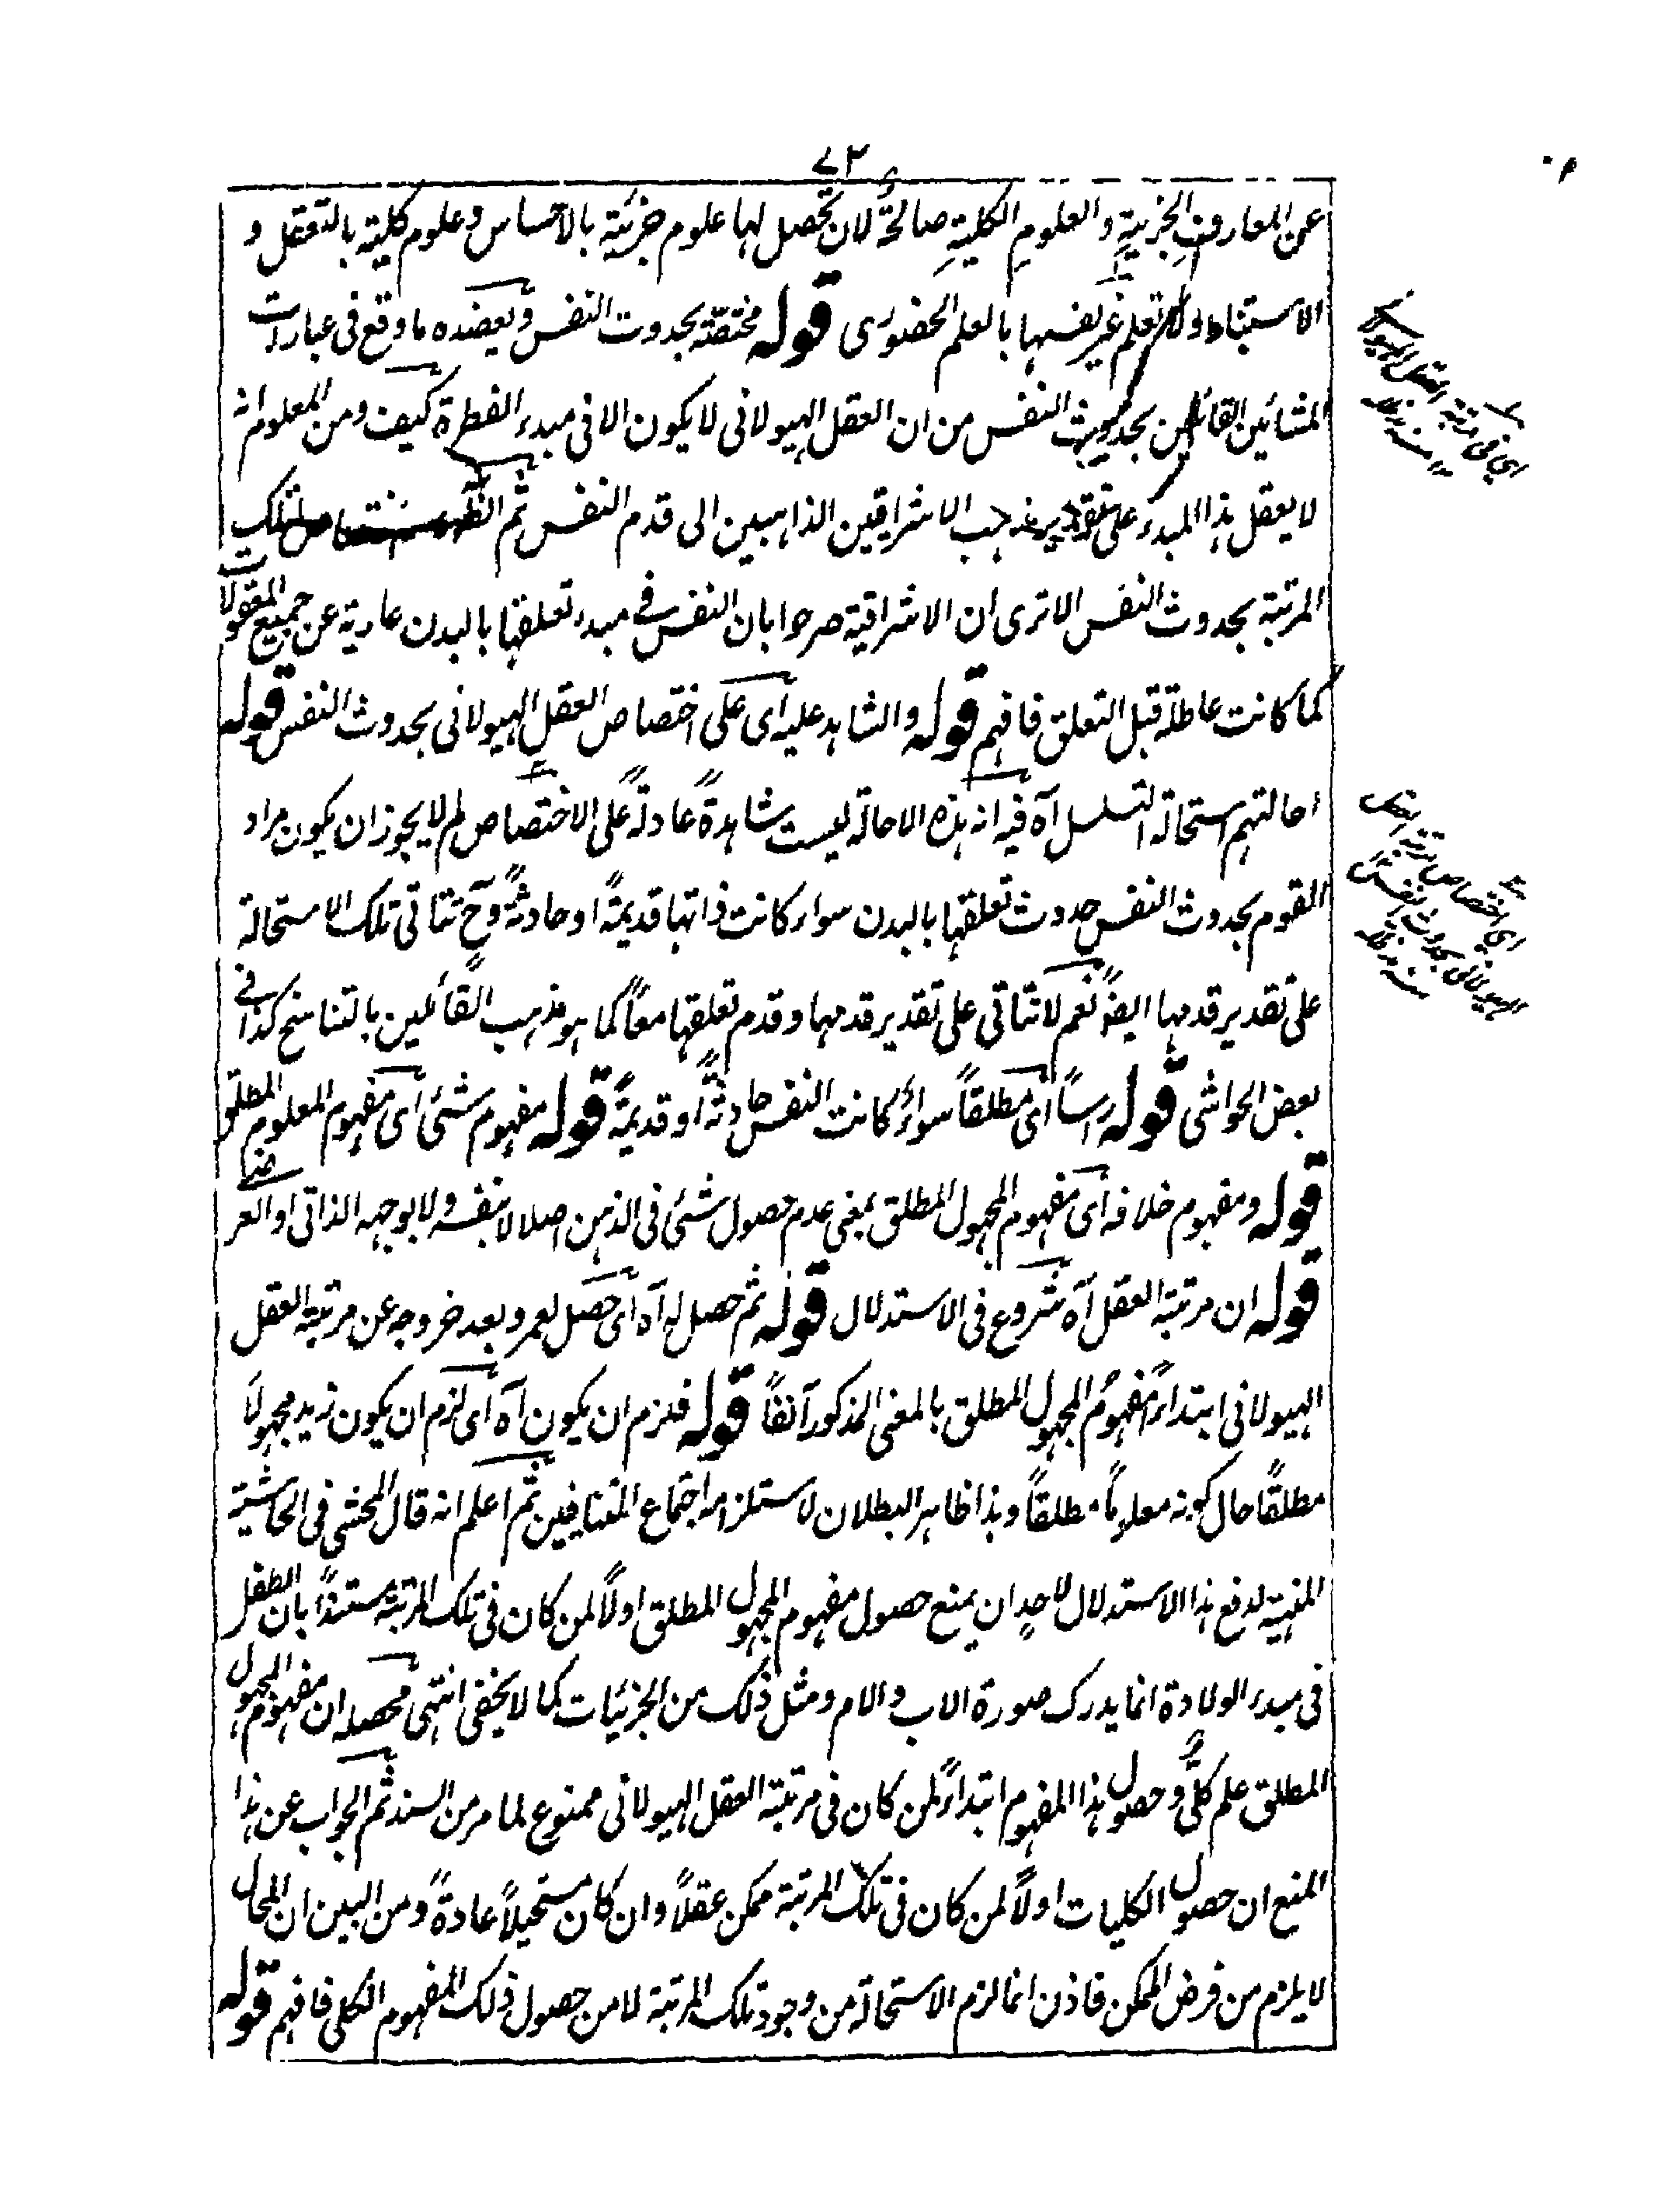 ٧٢
عن المعارف الجزئية والعلوم الكلية صالحة لان تحصل لها علوم جزئية بالاحساس وعلوم كلية بالتعقل و
الاستنباط ولا تعلم غير نفسها بالعلم الحضوری قوله مختصة بحدوث النفس ويعضده ما وقع فی عبارات
المشائين القائلين بحدوث النفس من ان العقل الهيولانی لا يكون الا فی مبدء الفطرة كيف ومن المعلوم انه
لا يعقل هذا المبدء على تقدير مذهب الاشراقيين الذاهبين الى قدم النفس ثم تلك
المرتبة بحدوث النفس الا ترى ان الاشراقية صرحوا بان النفس فی مبدء تعلقها بالبدن عارية عن جميع المعقولات
كما كانت عاطلة قبل التعلق فافهم قوله والشاهد عليه ای على اختصاص العقل الهيولانی بحدوث النفس قوله
احالتهم استحالة التسلسل آه فيه انه هذه الاحالة ليست شاهدة عادلة على الاختصاص لم لا يجوز ان يكون مراد
القوم بحدوث النفس حدوث تعلقها بالبدن سواء كانت ذاتها قديمةً او حادثةً وح تتاتى تلك الاستحالة
على تقدير قدمها ايضًا نعم لا تتاتى على تقدير قدمها وقدم تعلقها معاً كما هو مذهب القائلين بالتناسخ كذا فی
بعض الحواشی قوله رأساً ای مطلقاً سواءٌ كانت النفس حادثةً او قديمةً قوله مفهوم شئی ای مفهوم المعلوم المطلق
قوله ومفهوم خلافه ای مفهوم المجهول المطلق بمعنى عدم حصول شئی فی الذهن اصلا لا بنفسه ولا بوجهه الذاتی او العرضی
قوله ان مرتبة العقل آه شروع فی الاستدلال قوله ثم حصل له آه ای حصل لعمرو بعد خروجه عن مرتبة العقل
الهيولانی ابتداءً مفهومُ المجهول المطلق بالمعنى المذكور آنفاً قوله فلزم ان يكون آه ای لزم ان يكون زيد مجهولاً
مطلقًا حال كونه معلوماً مطلقاً وهذا ظاهر البطلان لاستلزامه اجتماع المتنافيين ثم اعلم انه قال المحشی فی الحاشية
المنهية لدفع هذا الاستدلال لاحدٍ ان يمنع حصول مفهوم المجهول المطلق اولاً لمن كان فی تلك المرتبة مستنداً بان الطفل
فی مبدء الولادة انما يدرك صورة الاب والام ومثل ذلك من الجزئيات كما لا يخفى انتهى محصله ان مفهوم المجهول
المطلق علم كلیٌّ وحصول هذا المفهوم ابتداءً لمن كان فی مرتبة العقل الهيولانی ممنوع لما مر من السند ثم الجواب عن هذا
المنع ان حصول الكليات اولاً لمن كان فی تلك المرتبة ممكن عقلاً وان كان مستحيلاً عادةً ومن البين ان المحال
لا يلزم من فرض الممكن فاذن انما لزم الاستحالة من وجود تلك المرتبة لا من حصول ذلك المفهوم الكلی فافهم قوله
ای فی مرتبة العقل الهيولانی
ای اختصاص مرتبة العقل
الهيولانی بحدوث النفس